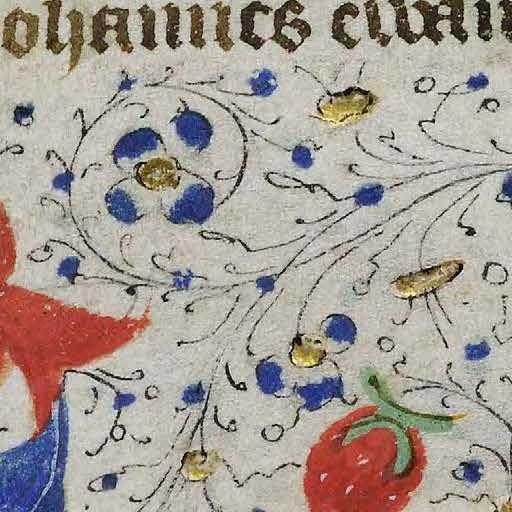 ohannes ewan